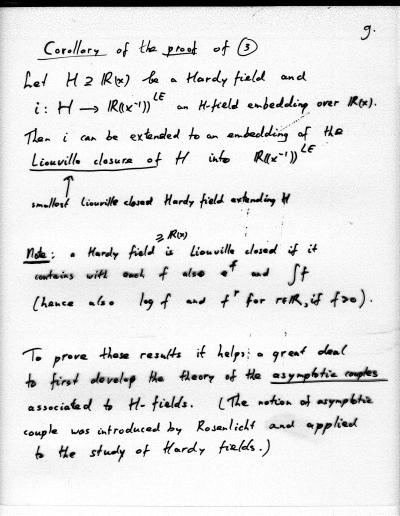 9.
Corollary of the proof of ③
Let H ⊇ ℝ(x) be a Hardy field and
i : H → ℝ((x⁻¹))^LE an H-field embedding over ℝ(x).
Then i can be extended to an embedding of the
Liouville closure of H into ℝ((x⁻¹))^LE
↑
smallest Liouville closed Hardy field extending H
⊇ ℝ(x)
Note: a Hardy field is Liouville closed if it
contains with each f also e^f and ∫f
(hence also log f and f^r for r∈ℝ, if f>0).
To prove these results it helps a great deal
to first develop the theory of the asymptotic couples
associated to H-fields. (The notion of asymptotic
couple was introduced by Rosenlicht and applied
to the study of Hardy fields.)